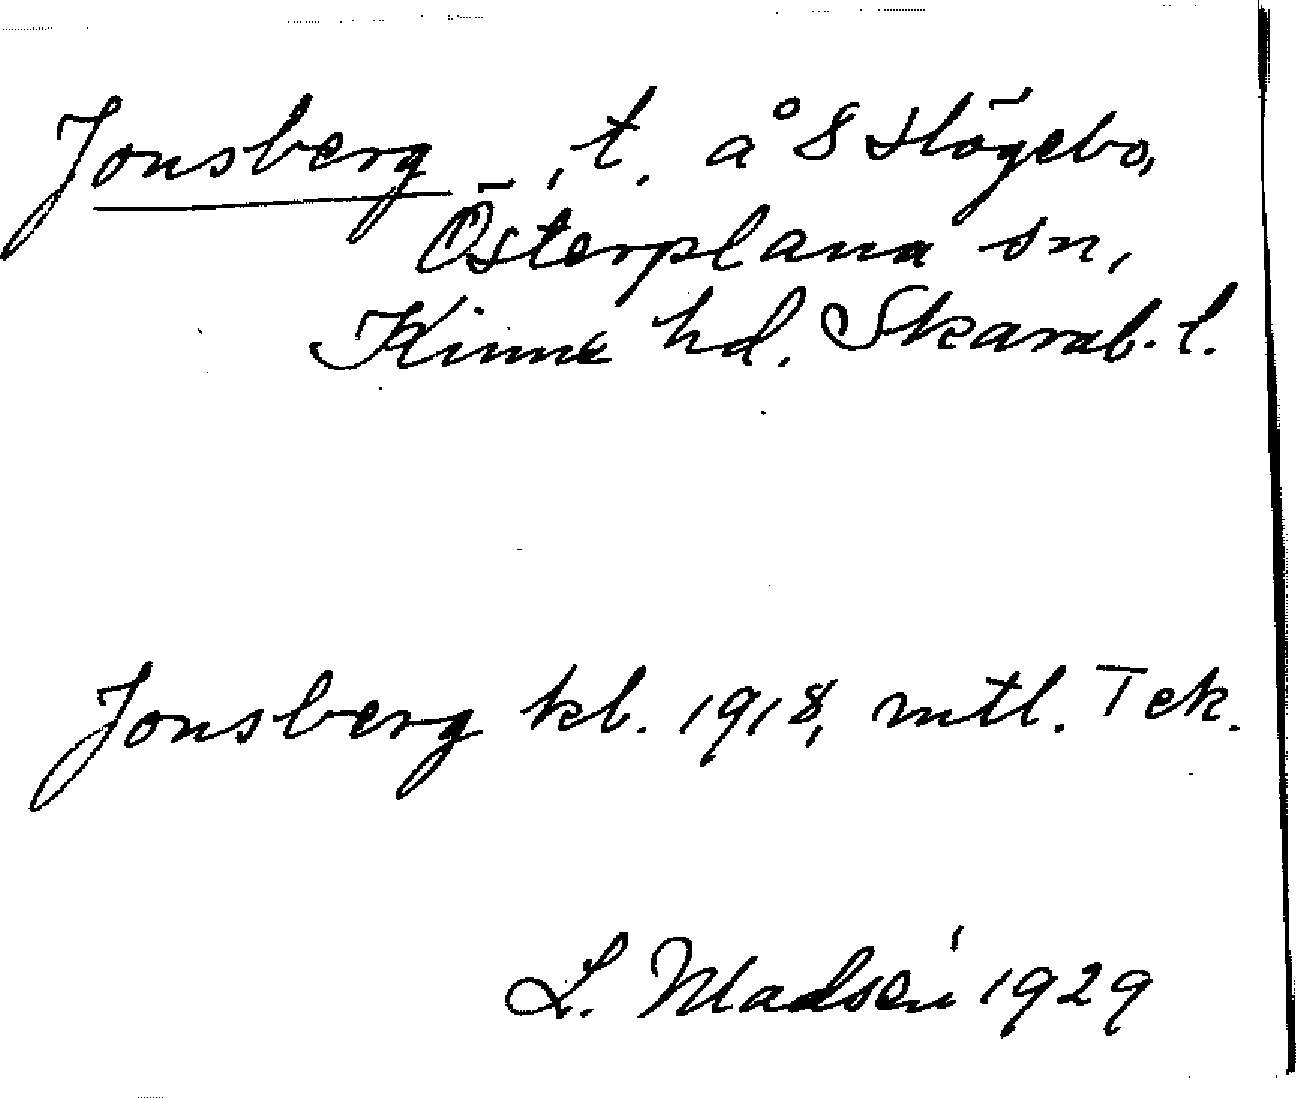 Jonsberg, t. å 8 Högebo,
Österplana sn,
Kinne hd. Skarab. l.
Jonsberg kl. 1918, mtl. Tek.
L. Madsén 1929